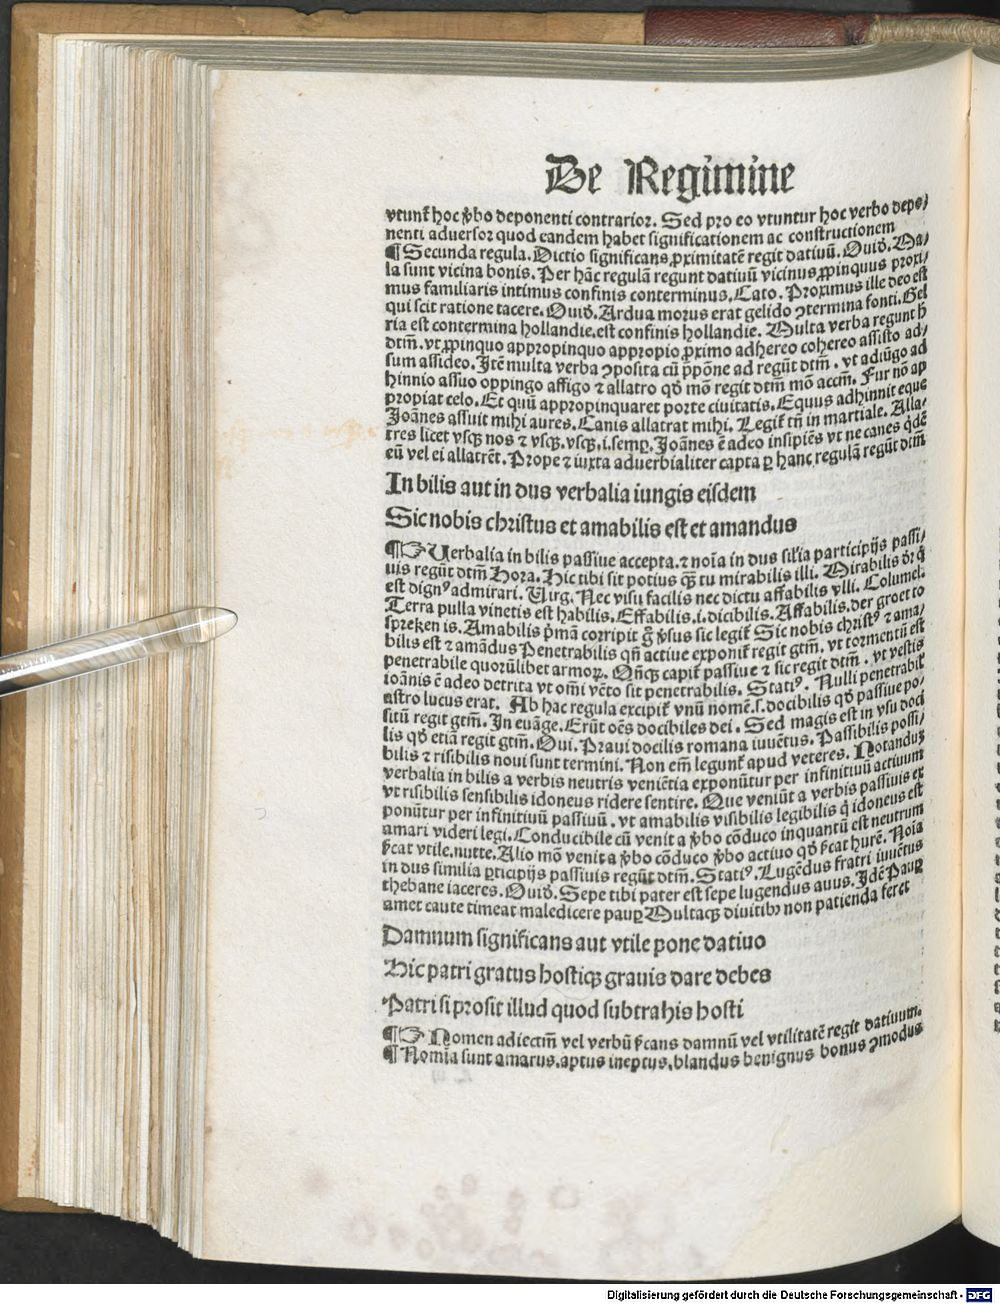 De Regimine
vtunt̄ hoc v̄bo deponenti contrarior. Sed pro eo vtuntur hoc verbo depo/
nenti adversor quod eandem habet significationem ac constructionem
¶ Secunda regula. Dictio significans ꝓximitatē regit datiuū. Ouid. Ma/
la sunt vicina bonis. Per hāc regulā regunt datiuū vicinus ꝓpinquus proxi/
mus familiaris intimus confinis conterminus. Cato. Proximus ille deo est
qui scit ratione tacere. Ouid. Ardua morus erat gelido ꝯtermina fonti. Gel
ria est contermina hollandie. est confinis hollandie. Multa verba regunt h̄
dtm̄. vt ꝓpinquo appropinquo appropio ꝓximo adhereo cohereo assisto ad/
sum assideo. Itē multa verba ꝯposita cū p̄pōne ad regūt dtm̄. vt adiūgo ad
hinnio assuo oppingo affigo ⁊ allatro qd̄ mō regit dtm̄ mō accm̄. Fur nō ap
propiat celo. Et quū appropinquaret porte ciuitatis. Equus adhinnit eque
Joānes assuit mihi aures. Canis allatrat mihi. Legit̄ tn̄ in martiale. Alla/
tres licet vsqꝫ nos ⁊ vsqꝫ. vsqꝫ .i. semꝑ. Joānes ē adeo insipiēs vt ne canes qd̄ē
eū vel ei allatrēt. Prope ⁊ iuxta aduerbialiter capta ꝑ hanc regulā regūt dtm̄
In bilis aut in dus verbalia iungis eisdem
Sic nobis christus et amabilis est et amandus
¶☞ Uerbalia in bilis passiue accepta. ⁊ noīa in dus sil'ia participijs passi/
uis regūt dtm̄ Hora. Hic tibi sit potius qꝫ̄ tu mirabilis illi. Mirabilis dr̄ q̄
est dignꝰ admirari. Uirg. Nec visu facilis nec dictu affabilis vlli. Columel.
Terra pulla vinetis est habilis. Effabilis .i. dicibilis. Affabilis. der groet to
spreken is. Amabilis p̄mā corripit g̊ v̄sus sic legit̄ Sic nobis christꝰ ⁊ ama/
bilis est ⁊ amādus Penetrabilis qn̄ actiue exponit̄ regit gtm̄. vt tormentū est
penetrabile quorūlibet armoꝝ. Qn̄qꝫ capit̄ passiue ⁊ sic regit dtm̄. vt vestis
ioānis ē adeo detrita vt om̄i vēto sit penetrabilis. Statiꝰ. Nulli penetrabil'
astro lucus erat. Ab hac regula excipit̄ vnū nomē .s. docibilis qd̄ passiue po/
sitū regit gtm̄. In euāge. Erūt oēs docibiles dei. Sed magis est in vsu doci
lis qd̄ etiā regit gtm̄. Oui. Praui docilis romana iuuētus. Passibilis possi/
bilis ⁊ risibilis noui sunt termini. Non em̄ legunt̄ apud veteres. Notanduꝫ
verbalia in bilis a verbis neutris veniētia exponūtur per infinitiuū actiuum
vt risibilis sensibilis idoneus ridere sentire. Que veniūt a verbis passiuis ex
ponūtur per infinitiuū passiuū. vt amabilis visibilis legibilis q̄ idoneus est
amari videri legi. Conducibile cū venit a v̄bo cōduco inquantū est neutrum
s̄cat vtile. nutte. Alio mō venit a v̄bo cōduco v̄bo actiuo qd̄ s̄cat hurē. Noīa
in dus similia ꝑticipijs passiuis regūt dtm̄. Statiꝰ. Lugēdus fratri iuuētus
thebane iaceres. Ouid. Sepe tibi pater est sepe lugendus auus. Idē Pauꝑ
amet caute timeat maledicere pauꝑ Multaqꝫ diuitibꝫ non patienda feret
Damnum significans aut vtile pone datiuo
Hic patri gratus hostiqꝫ grauis dare debes
Patri si prosit illud quod subtrahis hosti
¶☞ Nomen adiectm̄ vel verbū s̄cans damnū vel vtilitatē regit datiuum.
¶ Nomīa sunt amarus. aptus ineptus. blandus benignus bonus ꝯmodus
Digitalisierung gefördert durch die Deutsche Forschungsgemeinschaft - DFG